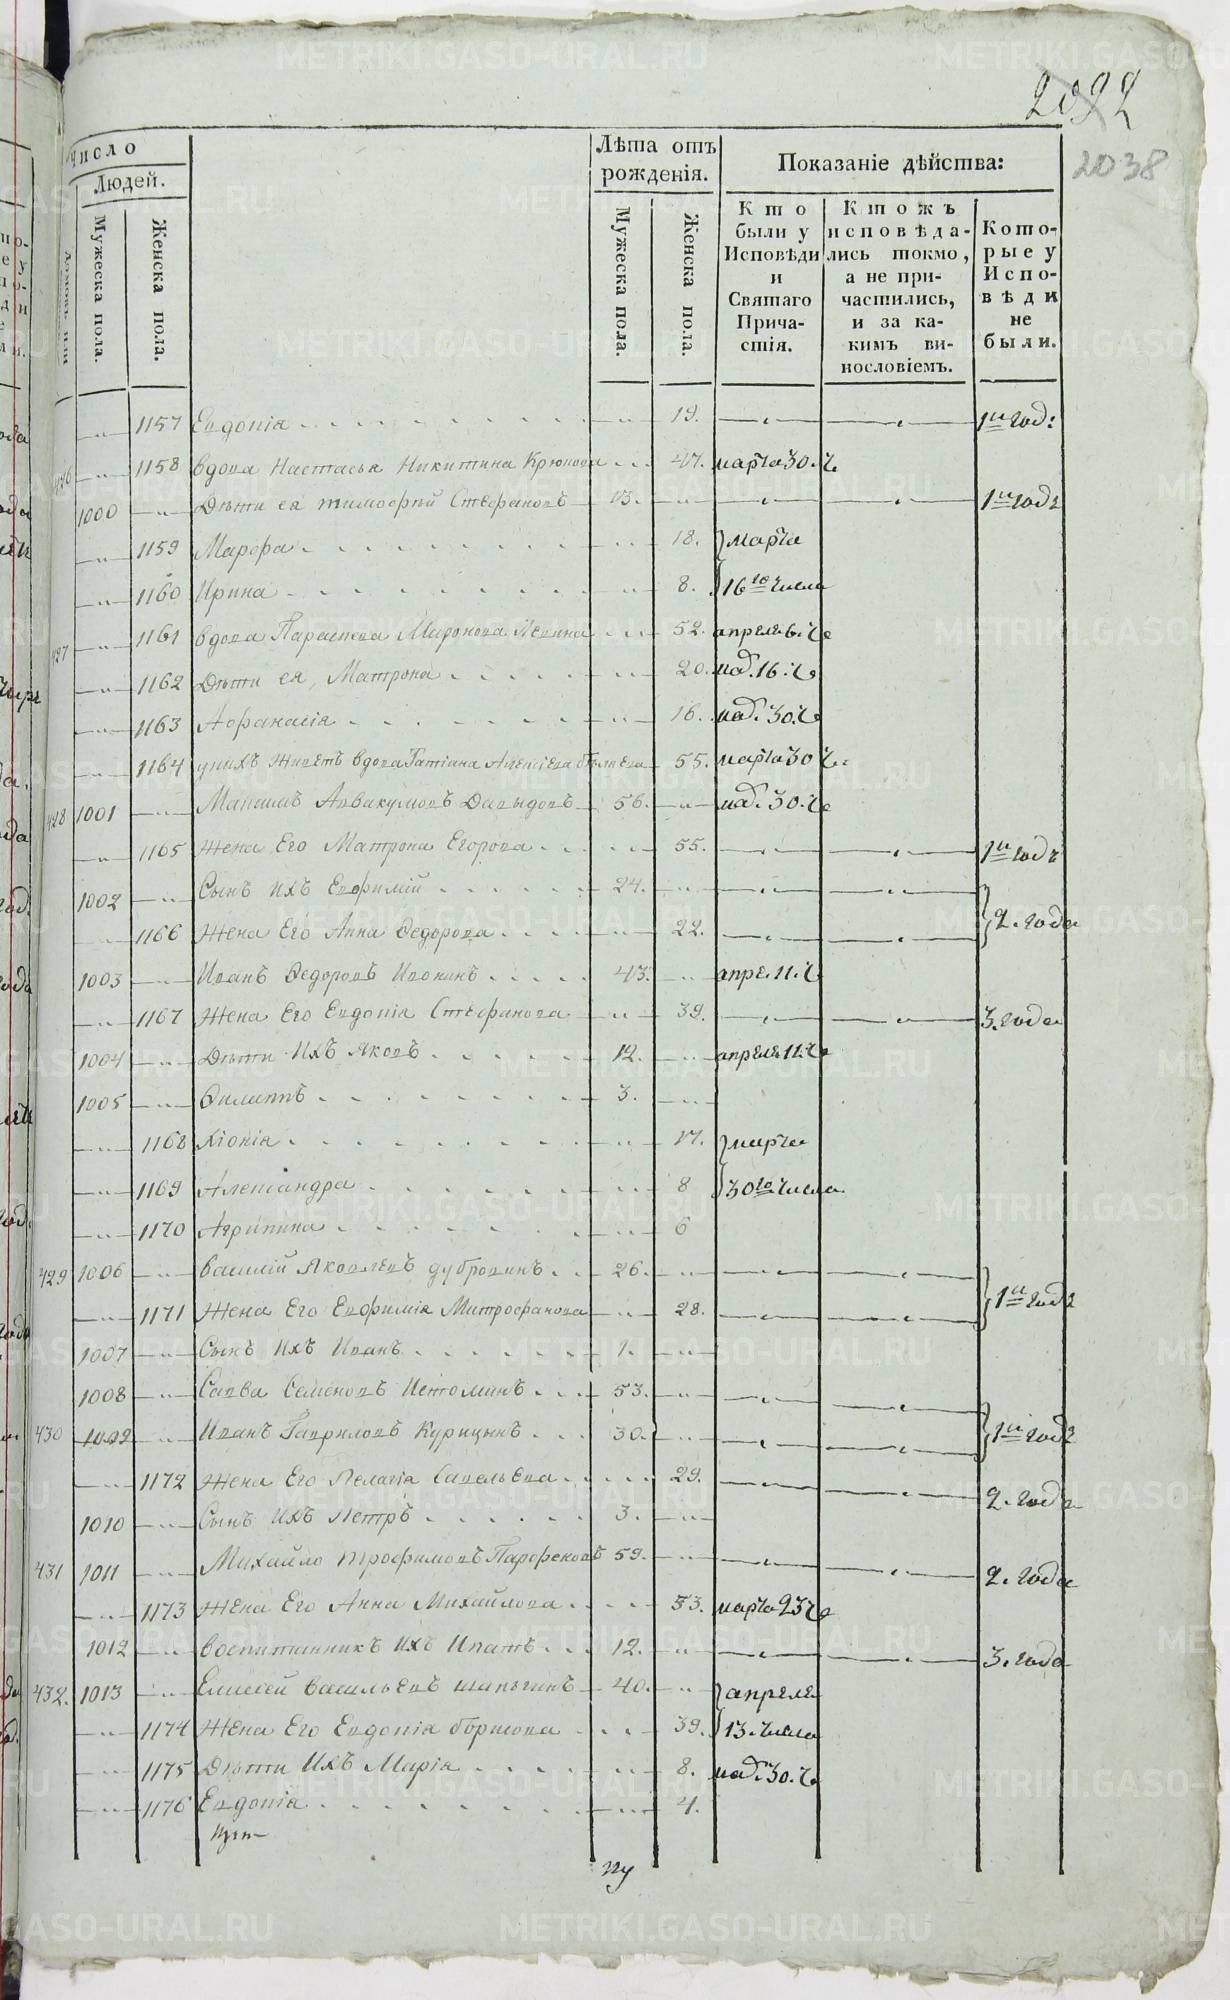 2022
2038
Число
Людей.
Мужеска пола.
Женска пола.
Лѣта отъ рожденія.
Мужеска пола.
Женска пола.
Показаніе дѣйства:
Кто были у Исповѣди и Святаго Причастія.
Ктожъ исповѣдались токмо, а не причастились, и за какимъ винословіемъ.
Которые у Исповѣди не были.
1157 Евдокія 19. 1й год:
426 1158 вдова Настасья Никитина Крюкова 47. марта 30. ч
1000 Дѣти ея тимофѣй Стефановъ 13. 1й годъ
1159 Марфа 18. марта
1160 Ирина 8. 16го числа
427 1161 вдова Параскева Миронова 52. апреля 6. ч
1162 Дѣти ея, Матрона 20. 16. ч
1163 Афанасія 16. 30. ч
1164 у нихъ живетъ вдова Татіана Алексіева бѣляева 55. марта 30 ч.
428 1001 Максимъ Аввакумовъ Давыдовъ 56. 30. ч
1165 Жена Его Матрона Егорова 55. 1й годъ
1002 Сынъ ихъ Евфимій 24.
1166 Жена Его Анна Федорова 22. 2. года
1003 Иванъ Федоровъ Ивонинъ 43. апреля 11. ч
1167 Жена Его Евдокія Стефанова 39. 3. года
1004 Дѣти ихъ Яковъ 12. апреля 11. ч
1005 Филиппъ 3.
1168 Хіонія 17. марта
1169 Александра 8 30го числа
1170 Агрипина 6
429 1006 Василій Яковлевъ дубровинъ 26.
1171 Жена Его Евфимія Митрофанова 28. 1й годъ
1007 Сынъ ихъ Иванъ 1.
1008 Савва Семеновъ Истоминъ 53.
430 1009 Иванъ Гавриловъ Курицынъ 30. 1й годъ
1172 Жена Его Пелагія Савельева 29. 2. года
1010 Сынъ ихъ Петръ 3.
431 1011 Михайло трофимовъ Парфеновъ 59. 2. года
1173 Жена Его Анна Михайлова 53. марта 23 ч
1012 воспитанникъ ихъ Ипатъ 12. 3. года
432. 1013 Елисей Васильевъ шапкинъ 40. апреля
1174 Жена Его Евдокія борисова 39. 13. числа
1175 Дѣти ихъ Марія 8. 30. ч
1176 Евдокія 4.